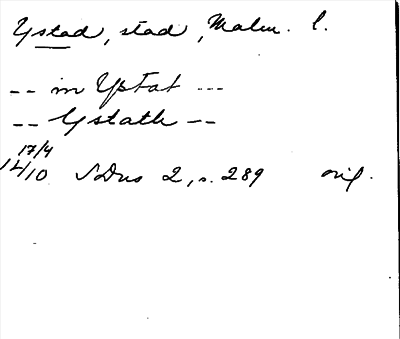 Ystad, stad, Malm. l.
-- in Ystat ---
-- Ystath --
17/4
14/10 SDns 2, s. 289 orig.